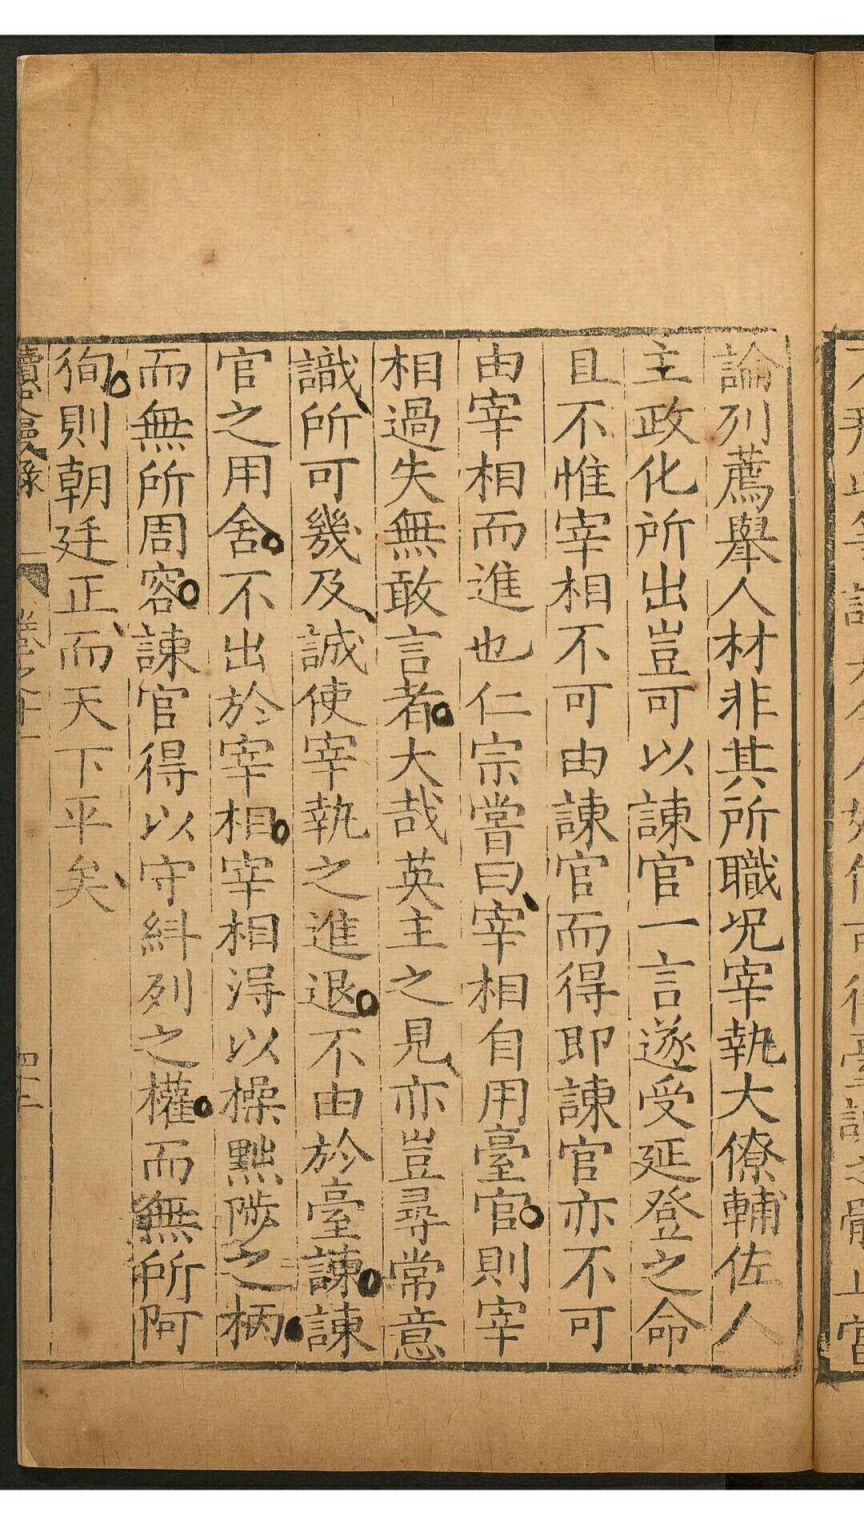 論列薦舉人材非其所職况宰執大僚輔佐人
主政化所出豈可以諫官一言遂受延登之命
且不惟宰相不可由諫官而得即諫官亦不可
由宰相而進也仁宗嘗曰宰相自用臺官則宰
相過失無敢言者大哉英主之見亦豈尋常意
識所可幾及誠使宰執之進退不由於臺諫諫
官之用舍不出於宰相宰相得以操黜陟之柄
而無所周容諫官得以守糾列之權而無所阿
狥則朝廷正而天下平矣
卷之十一